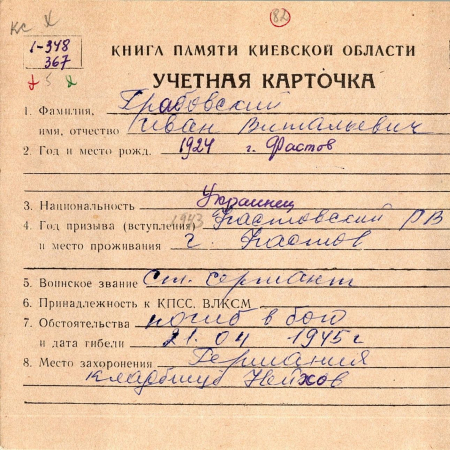 КС
82
1-348
367
КНИГА ПАМЯТИ КИЕВСКОЙ ОБЛАСТИ
УЧЕТНАЯ КАРТОЧКА
1. Фамилия, Грабовский
имя, отчество Иван Витальевич
2. Год и место рожд. 1924 г. Фастов
3. Национальность Украинец
4. Год призыва (вступления) 1943 Фастовский РВ
и место проживания г. Фастов
5. Воинское звание ст. сержант
6. Принадлежность к КПСС, ВЛКСМ
7. Обстоятельства погиб в бою
и дата гибели 21. 04 1945 г
8. Место захоронения Германия
Нейхов